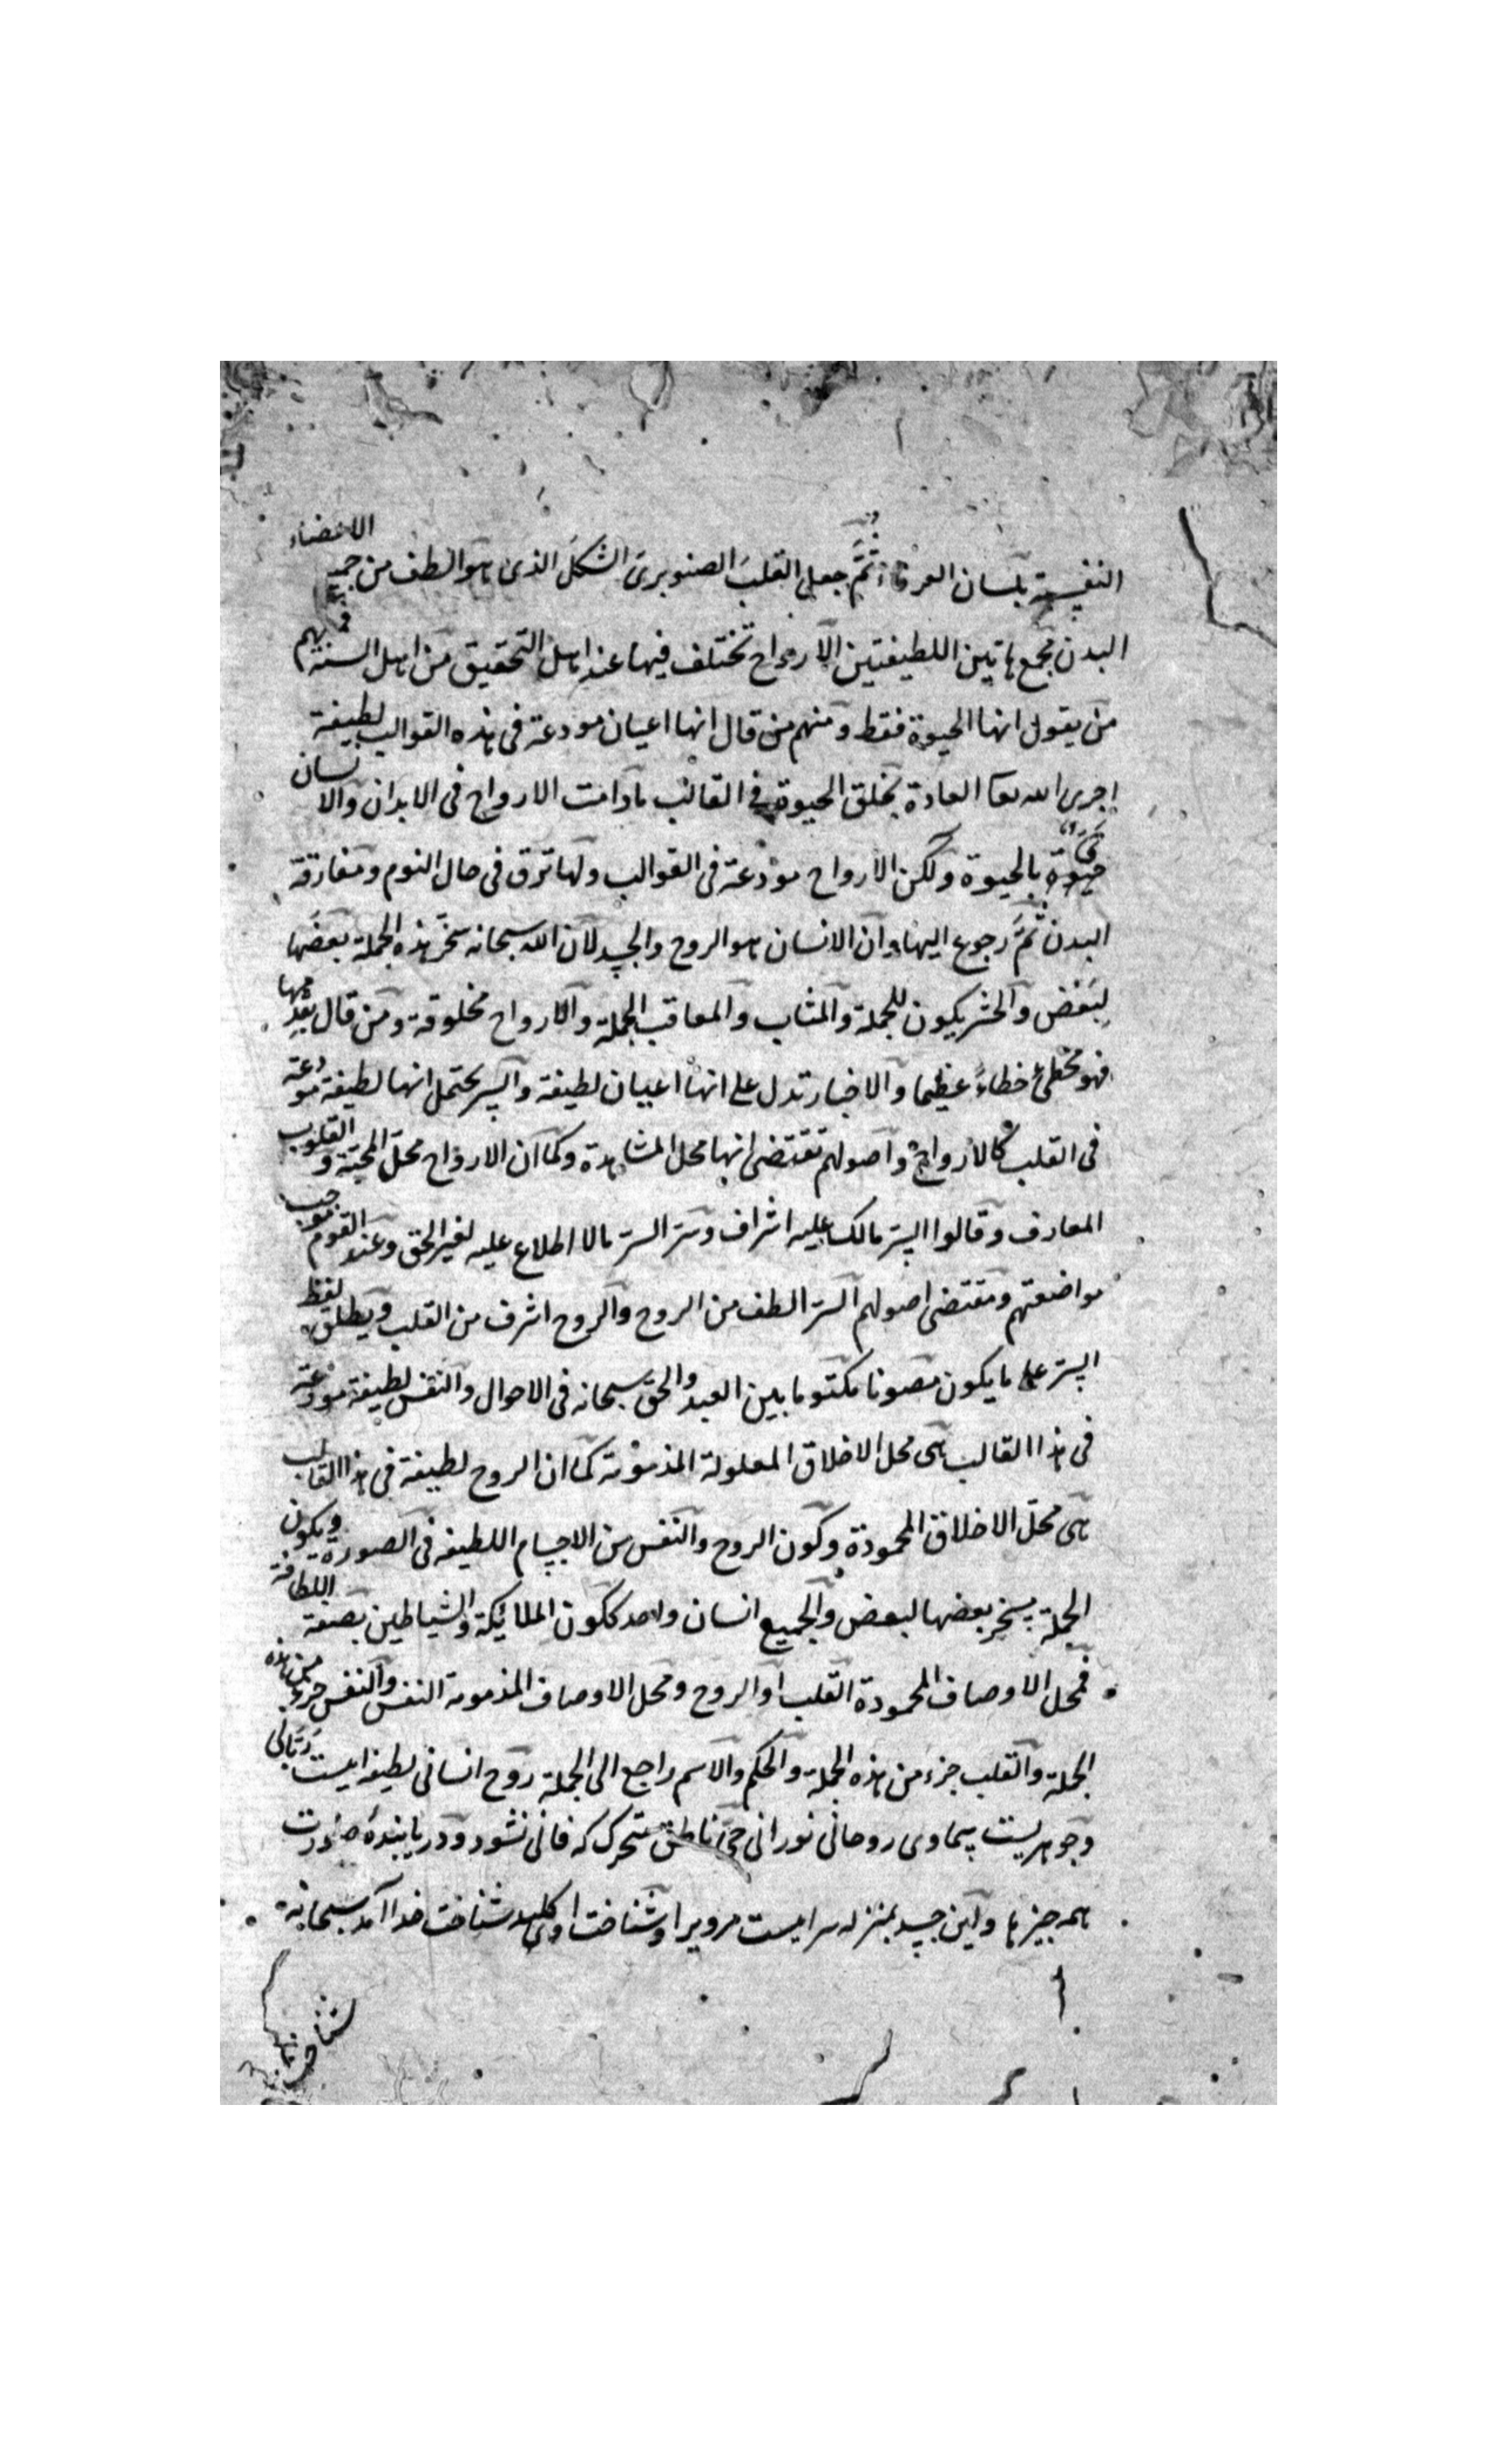 النفسية بلسان العرفاء ثم جعل القلب الصنوبرى الشكل الذى هو الطف من جميع الاعضاء
البدن مجمع هاتين اللطيفتين الارواح تختلف فيها عند اهل التحقيق من اهل السنة فمنهم
من يقول انها الحيوة فقط ومنهم من قال انها اعيان مودعة فى هذه القوالب لطيفة
اجرى الله تعا العادة بخلق الحيوة فى القالب مادامت الارواح فى الابدان والانسان
بالحيوة ولكن الارواح مودعة فى القوالب ولها ترق فى حال النوم ومفارقة
البدن ثم رجوع اليها وان الانسان هو الروح والجسد لان الله سبحانه سخر هذه الجملة بعضها
لبعض والحشر يكون للجملة والمثاب والمعاقب الجملة والارواح مخلوقة ومن قال بقدمها
فهو مخطئ خطاءً عظيما والاخبار تدل على انها اعيان لطيفة والسر يحتمل انها لطيفة مودعة
فى القلب كالارواح واصولهم تقتضى انها محل المشاهدة وكما ان الارواح محل المحبة والقلوب
المعارف وقالوا السر مالك عليه اشراف وسر السر مالا اطلاع عليه لغير الحق وعند القوم موجب
مواضعتهم ومقتضى اصولهم السر الطف من الروح والروح اشرف من القلب ويطلق لفظ
السر على ما يكون مصونا مكتوما بين العبد والحق سبحانه فى الاحوال والنفس لطيفة مودعة
فى هذا القالب هى محل الاخلاق المعلولة المذمومة كما ان الروح لطيفة فى هذا القالب
هى محل الاخلاق المحمودة وكون الروح والنفس من الاجسام اللطيفة فى الصورة ويكون
الجملة يسخر بعضها لبعض والجميع انسان واحد ككون الملائكة والشياطين بصفة اللطافة
فمحل الاوصاف المحمودة القلب او الروح ومحل الاوصاف المذمومة النفس والنفس جزء من هذه
الجملة والقلب جزء من هذه الجملة والحكم والاسم راجع الى الجملة روح انسانى لطيفه ايست ربانى
وجوهريست سماوى روحانى نورانى حى ناطق متحرك كه فانى نشود ودر يابنده صورت
همه جيزها واين جسد بمنزله سرايست مرويرا وشناخت او كليد شناخت خدا آمد سبحانه
شناخت